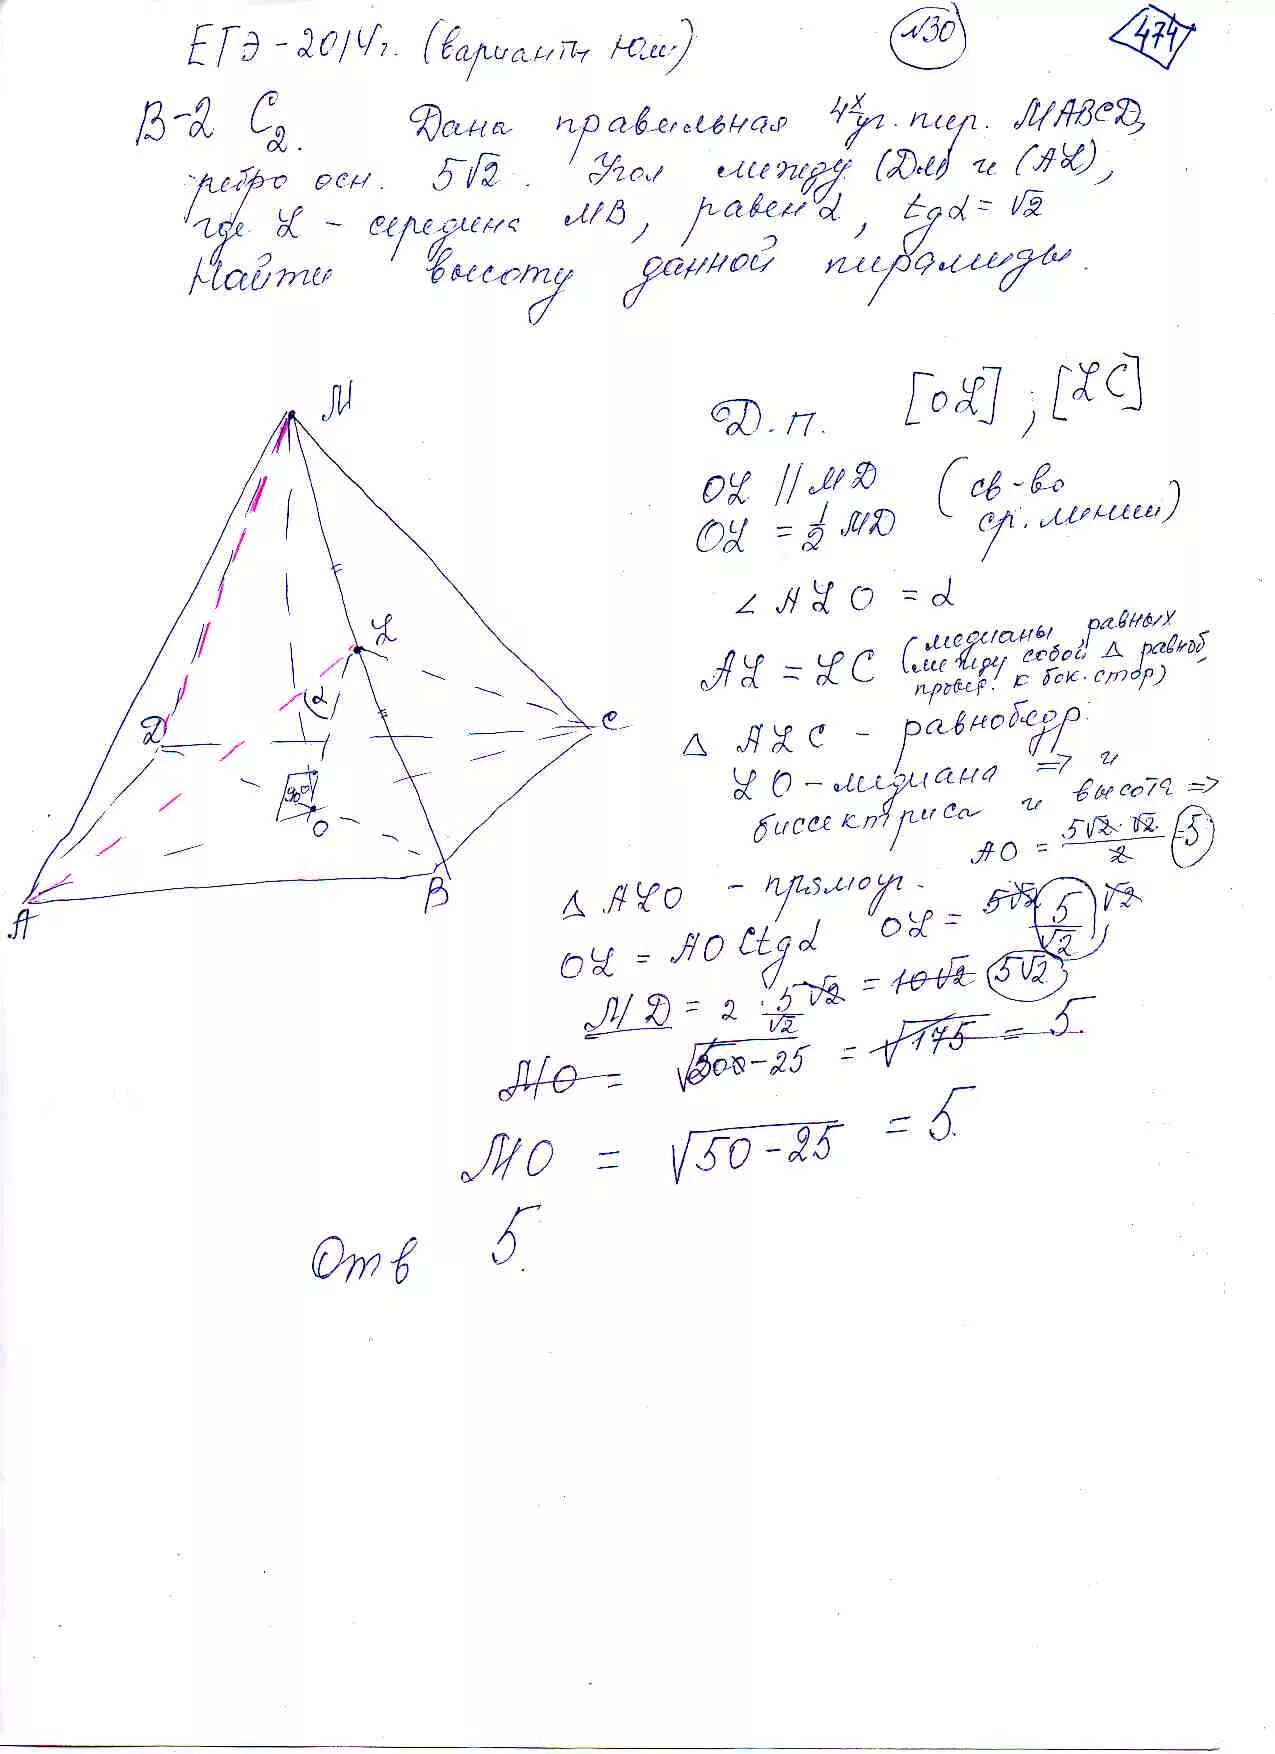 ЕГЭ-2014г. (варианты юм)
№30
474
В-2 С2. Дана правильная 4х уг. пир. MABCD,
ребро осн. 5√2. Угол между (DM) и (AL),
где L - середина MB, равен α, tgα = √2
Найти высоту данной пирамиды.
Д.п. [OL]; [LC]
M
L
D
C
α
90°
O
A
B
OL || MD (св-во
OL = 1/2 MD ср. линии)
∠ALO = α
AL = LC (медианы равных
между собой Δ равноб,
провед. к бок. стор)
Δ ALC - равнобедр.
LO - медиана => и
биссектриса и высота =>
AO = 5√2·√2/2 = 5
Δ ALO - прямоуг.
OL = AO Ctgα OL = 5√2 5/√2 √2
MD = 2 · 5/√2 √2 = 10√2 5√2
MO = √200-25 = √175 = 5.
MO = √50-25 = 5.
Отв 5.